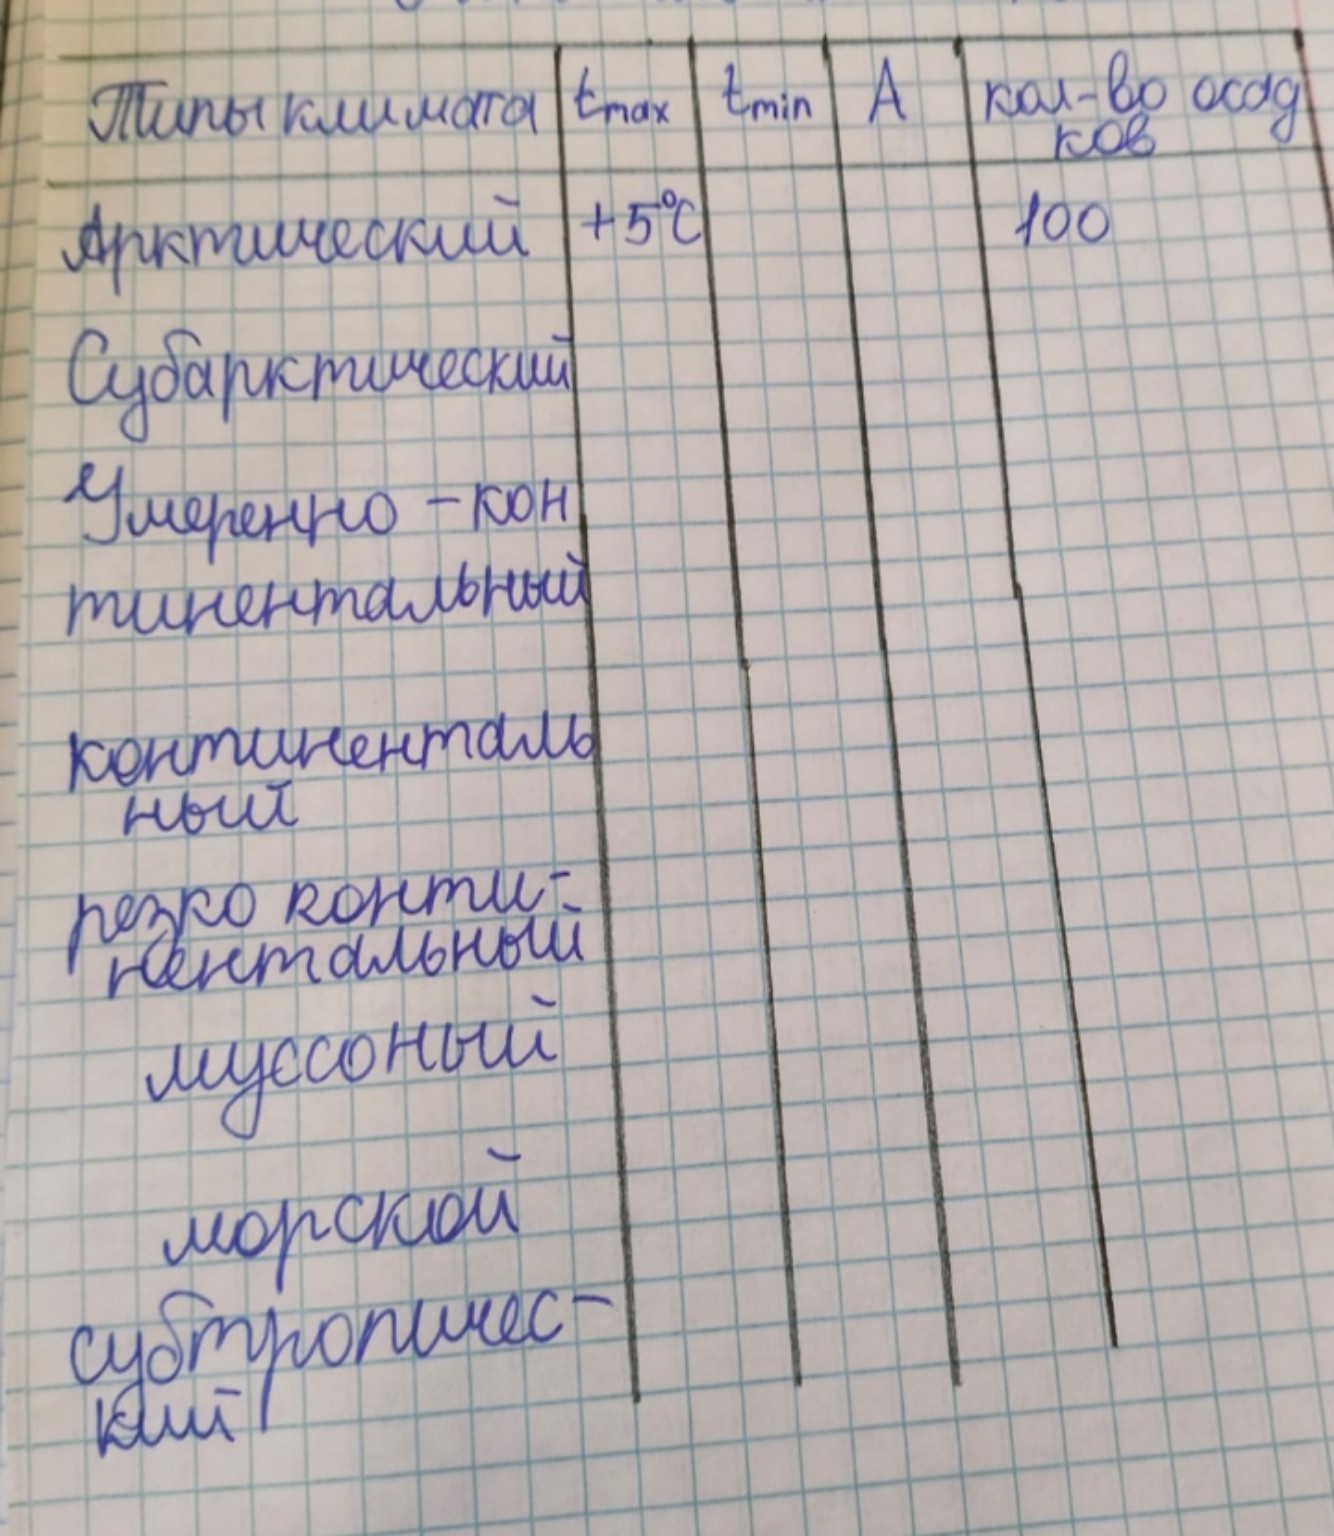 Типы климата tmax tmin А кол-во осад
ков
Арктический +5°С 100
Субарктический
Умеренно - кон
тинентальный
континенталь
ный
резко конти-
нентальный
муссоный
морской
субтропичес-
кий